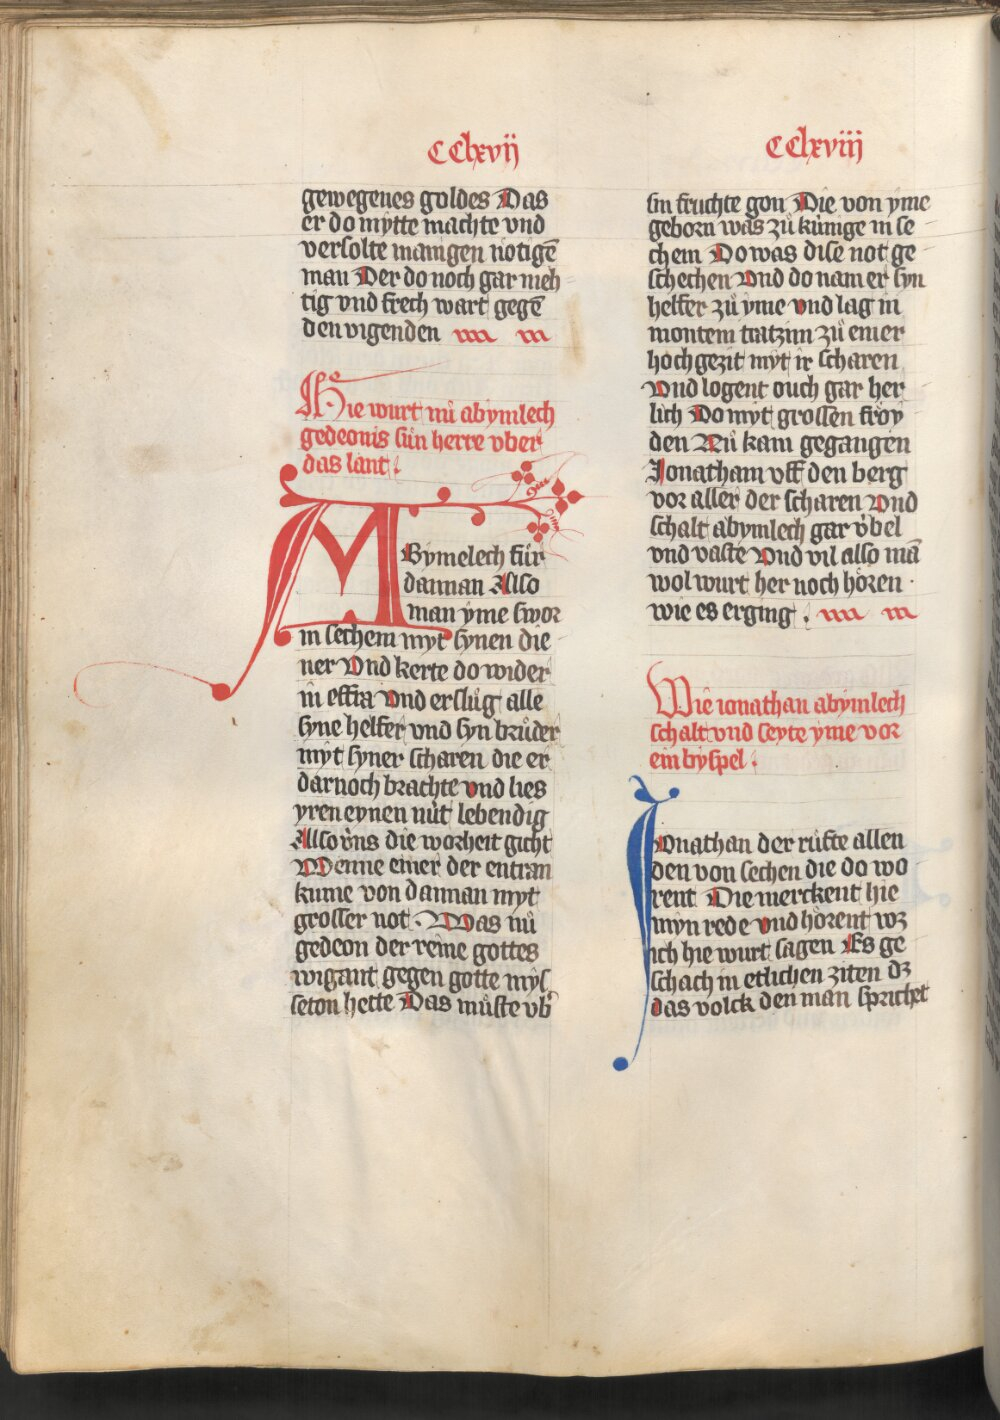 CClxvij
gewegenes goldes Das
er do mÿtte machte vnd
versolte manigen nötigē
man Der do noch gar meh
tig vnd frech wart gegē
den vigenden
Hie wurt nů abÿmlech
gedeonis sůn herre vber
das lant
ABÿmelech fůr
dannan Also
man ÿme swor
in sechem mÿt sÿnen die
ner Vnd kerte do wider
in effra Vnd erslůg alle
sÿne helfer vnd sÿn brůder
mÿt sÿner scharen die er
dar noch brachte vnd lies
yren eynen nůt lebendig
Also vns die worheit gicht
Wenne einer der entran
kume von dannan mÿt
grosser not . Was nů
gedeon der reine gottes
wigant gegen gotte mÿs
seton hette Das můste vb
CClxviij
sin fruchte gon Die von ÿme
geborn was zů kůnige in se
chem Do was dise not ge
schechen Vnd do nam er sÿn
helfer zů ÿme vnd lag in
montem tratzim zů einer
hochgezit mÿt ir scharen
Vnd logent ouch gar her
lich Do mÿt grossen fröy
den Nů kam gegangen
Jonatham vff den berg
vor aller der scharen Vnd
schalt abÿmlech gar v̊bel
vnd vaste Vnd vil also mā
wol wurt her noch hören ·
wie es erging .
Wie ionathan abÿmlech
schalt vnd seyte ÿme vor
ein bÿspel
JOnathan der růfte allen
den von sechen die do wo
rent Die merckent hie
mÿn rede vnd hörent wz
ich hie wurt sagen Es ge
schach in etlichen ziten dz
das volck den man sprichet